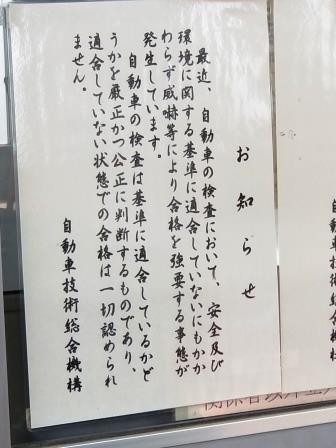 お知らせ
最近、自動車の検査において、安全及び
環境に関する基準に適合していないにもかか
わらず威嚇等により合格を強要する事態が
発生しています。
自動車の検査は基準に適合しているかど
うかを厳正かつ公正に判断するものであり、
適合していない状態での合格は一切認められ
ません。
自動車技術総合機構